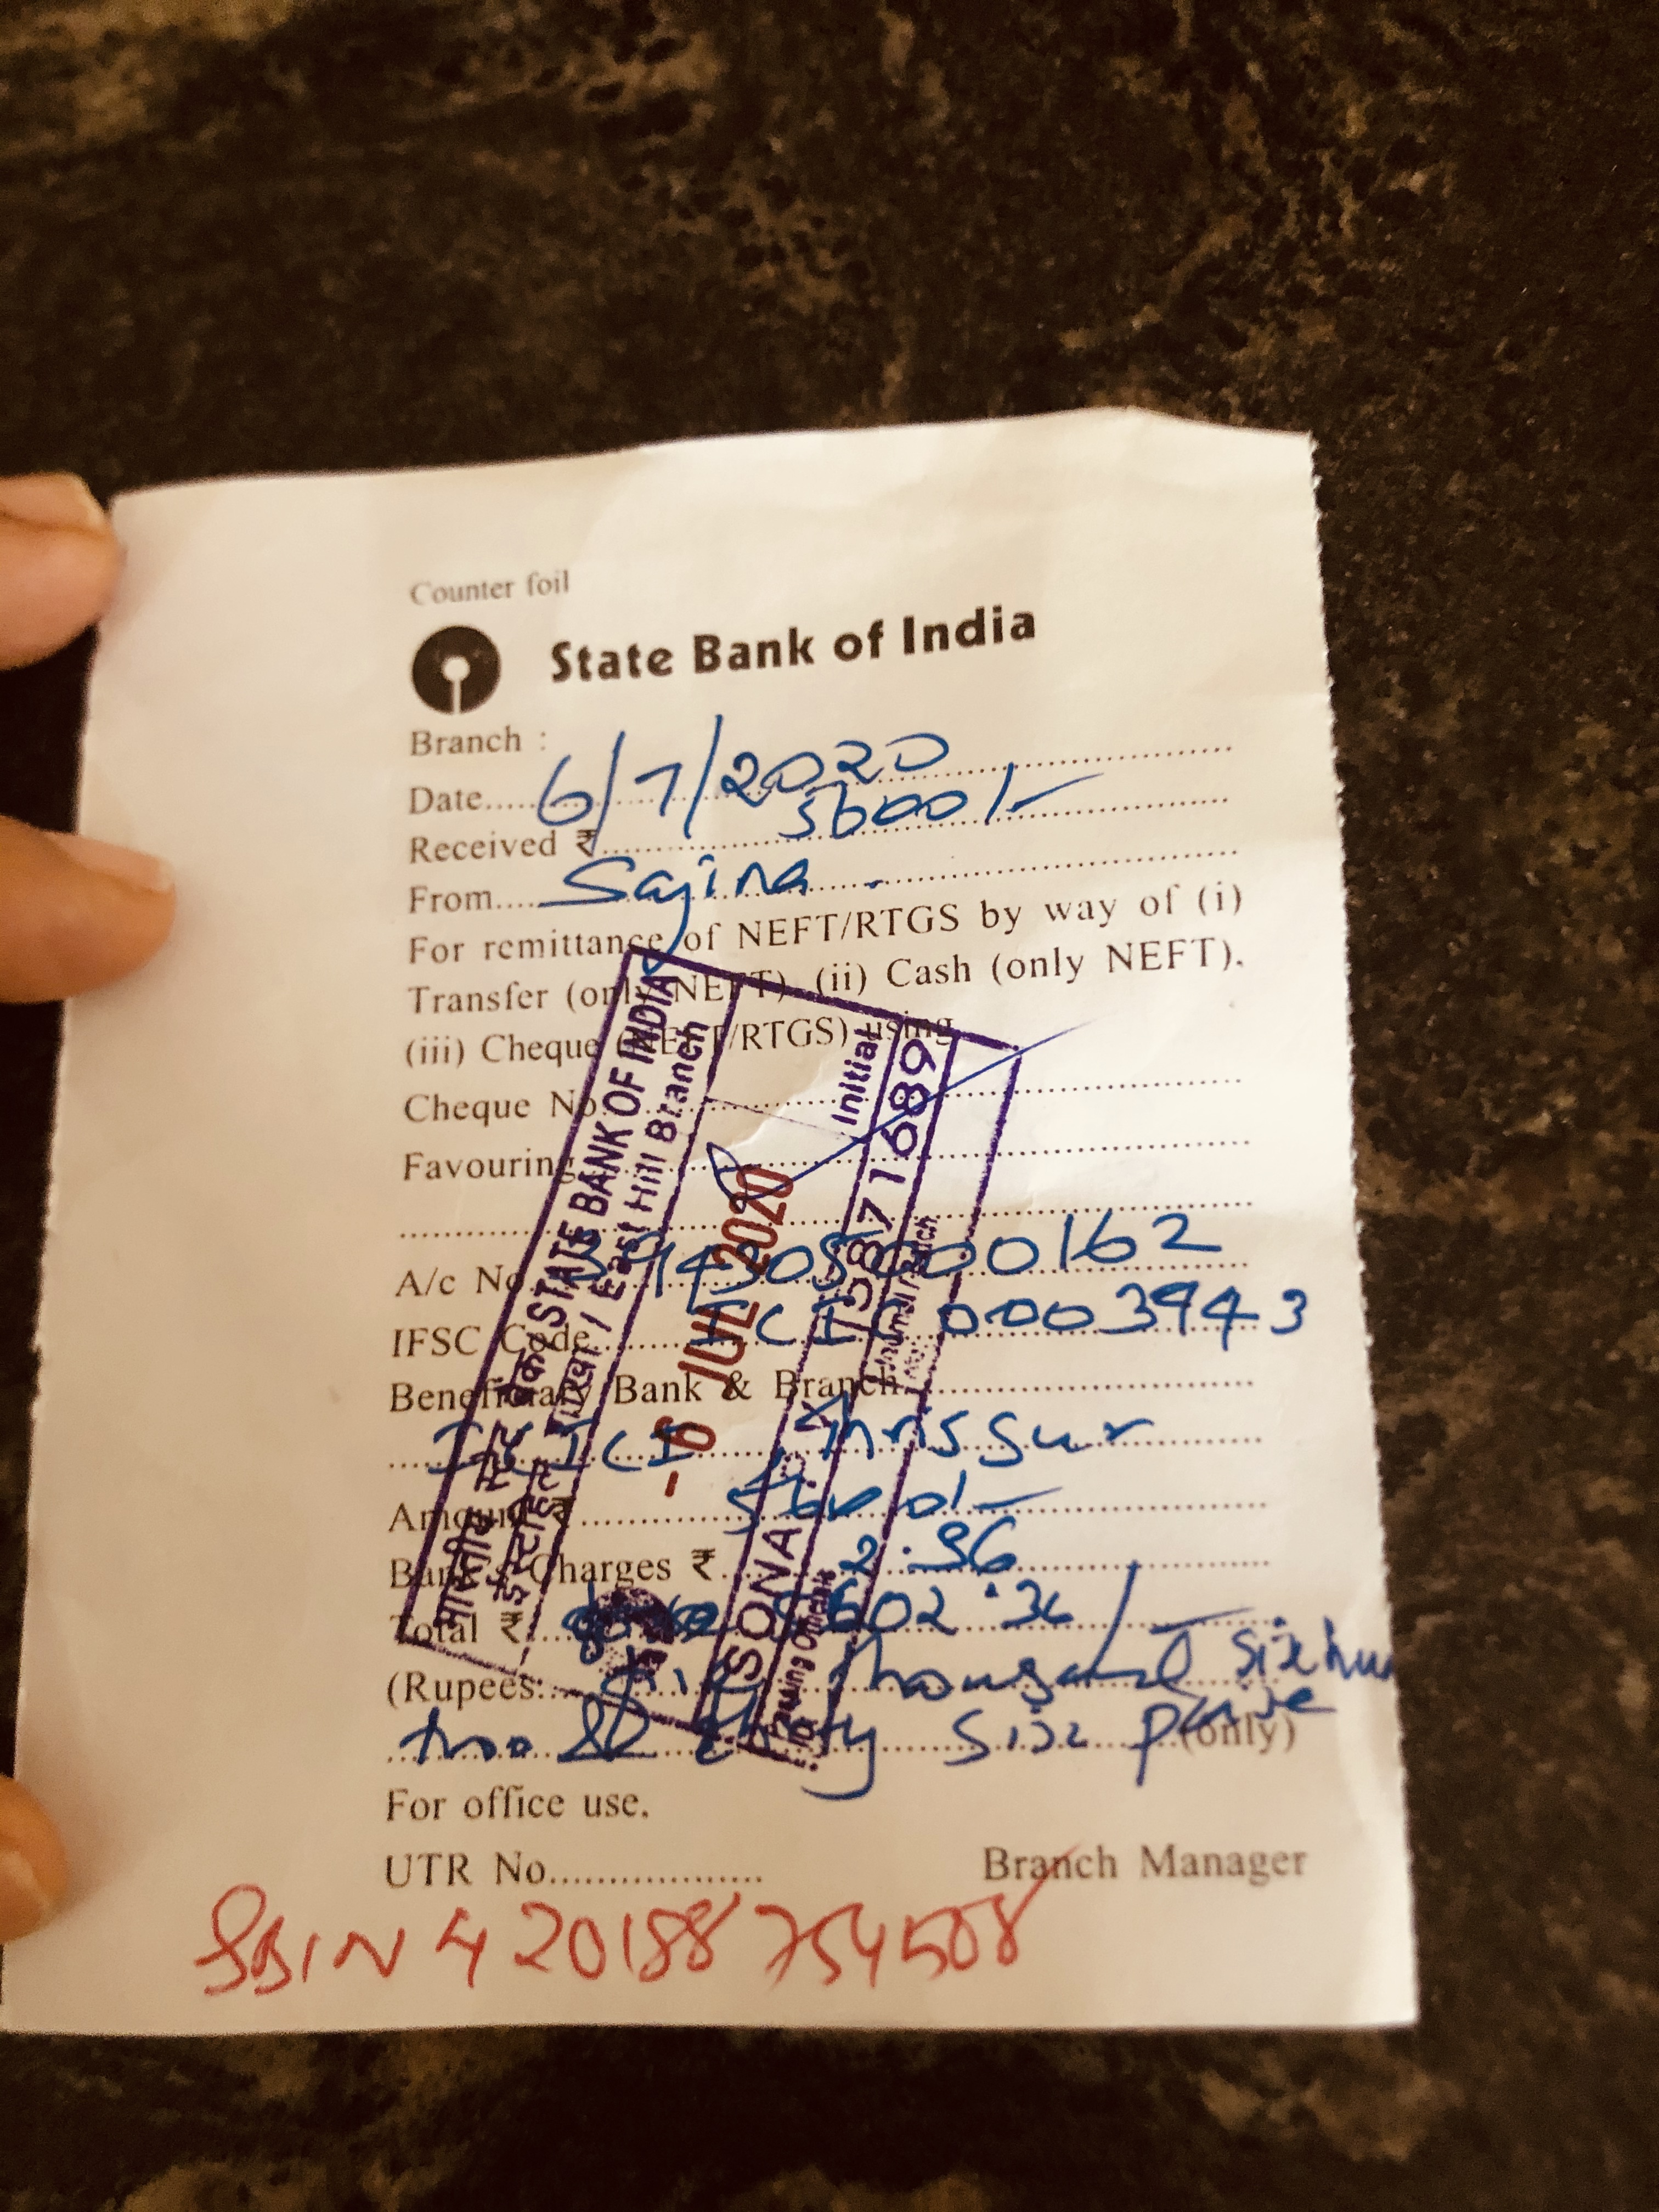 Counter foil
State Bank of India
Branch :
Date..... 6/7/2020
Received ₹ 5600/-
From..... Sajina
For remittance of NEFT/RTGS by way of (i)
Transfer (only NEFT), (ii) Cash (only NEFT),
(iii) Cheque (NEFT/RTGS) using
Cheque No.
Favouring
A/c No. 394305000162
IFSC Code ICIC 0003943
Beneficiary Bank & Branch
ICICI, Thrissur
Amount ₹ 5600/-
Bank's Charges ₹ 2.36
Total ₹ 5602.36
(Rupees: five thousand six hun
two & thirty six paise (only)
For office use.
UTR No................... Branch Manager
SBIN420188754508
भारतीय स्टेट बैंक / STATE BANK OF INDIA
ईस्ट हिल शाखा / East Hill Branch
-6 JUL 2020
Initial
SONA
15871689